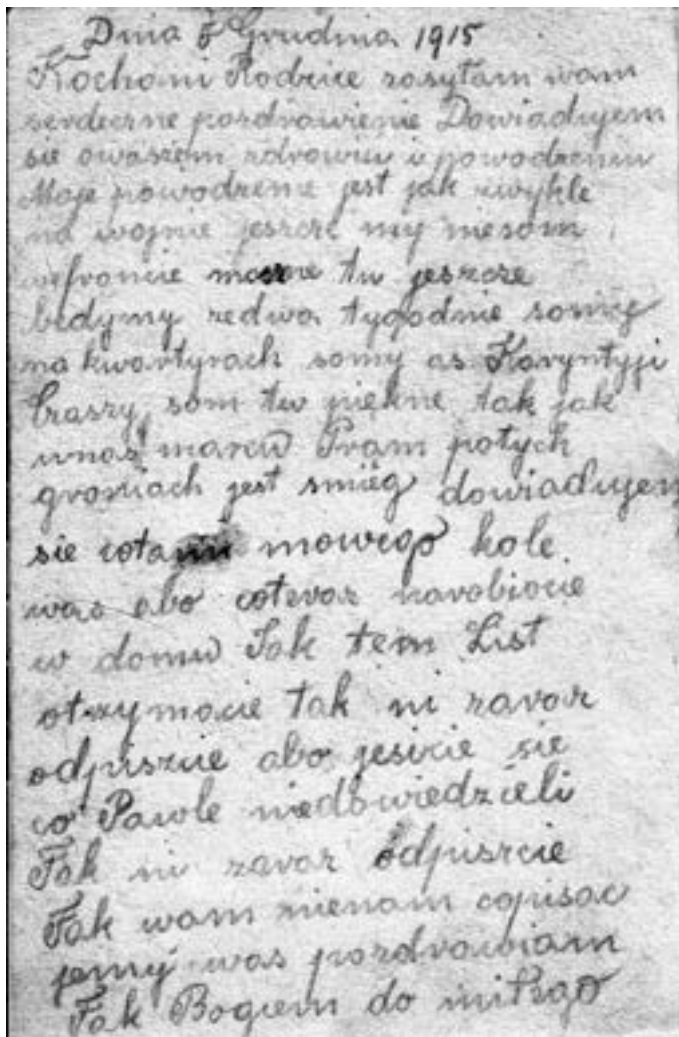 Dnia 5 Grudnia 1915
Kochani Rodzice zasyłam wam
serdeczne pozdrawienie Dowiadujem
sie owaszem zdrowiu i powodzeniu
Moje powodzenie jest jak zwykle
na wojnie jeszcze my niesom
wefroncie tu jeszcze
bedymy zedwa tygodnie somy
na kwartyrach somy as Karyntyji
Czaszy som tu piekne tak jak
wnas marcu potych
groniach jest snieg dowiadujem
sie cotam nowego kole
was abo coteraz narobiocie
w domu Jak tem List
otrzymocie tak ni zaroz
odpiszcie abo jesicie sie
co Pawle niedowiedzieli
Tak ni zaroz odpiszcie
Tak wam nienam copisac
jemy was pozdrawiam
Tak Bogiem do miłego